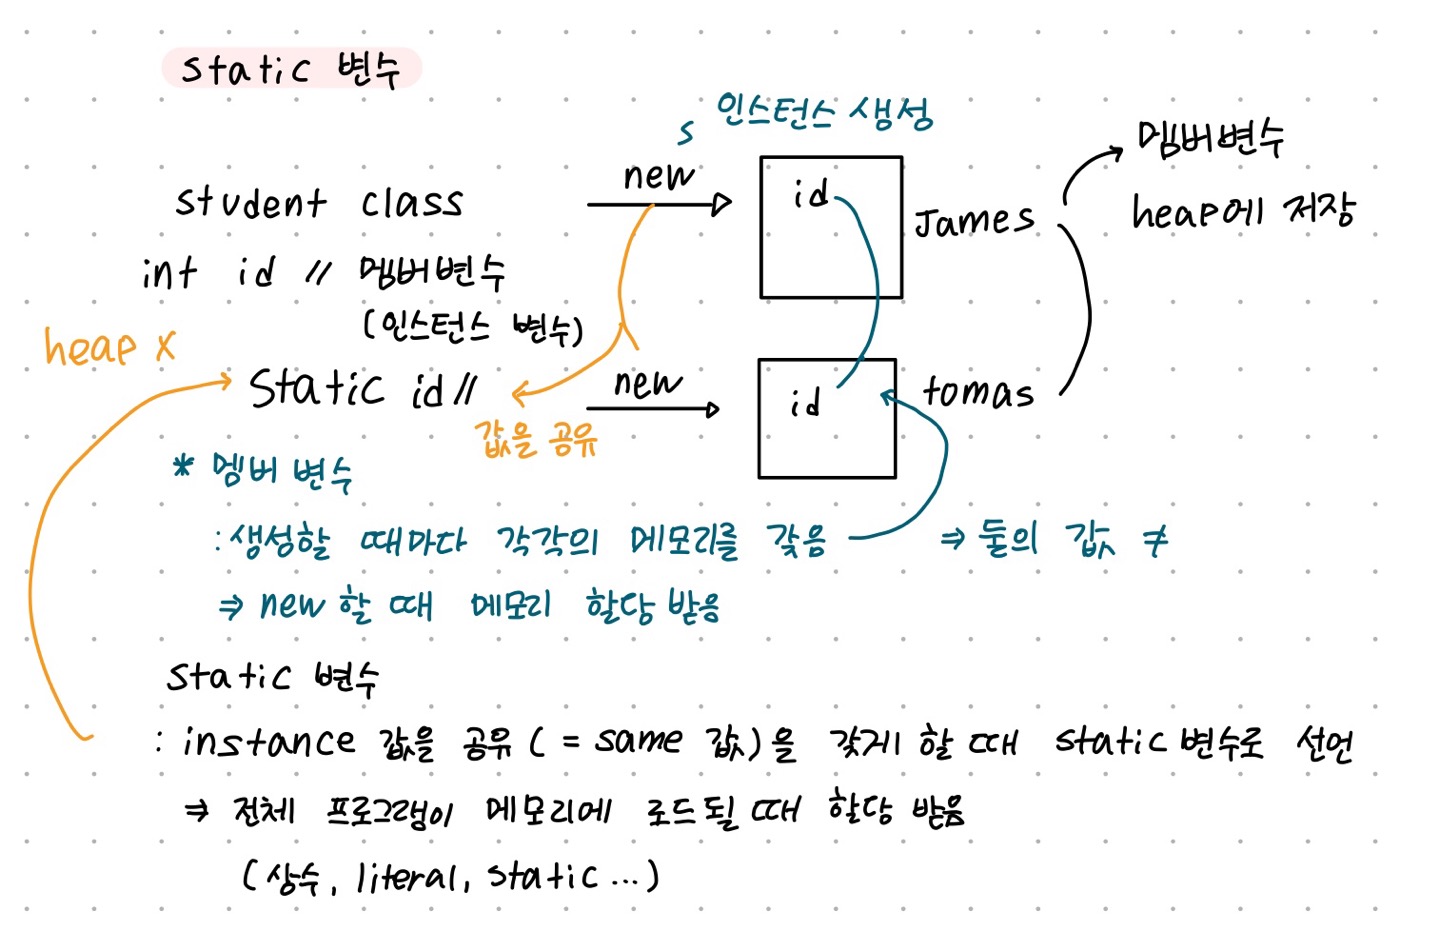 static 변수
s 인스턴스 생성
new
id
James
멤버변수
heap에 저장
student class
int id // 멤버변수
(인스턴스 변수)
heap x
static id //
new
id
tomas
값을 공유
* 멤버 변수
: 생성할 때마다 각각의 메모리를 갖음 ⇒ 둘의 값 ≠
⇒ new 할 때 메모리 할당 받음
static 변수
: instance 값을 공유 ( = same 값)을 갖게 할 때 static 변수로 선언
⇒ 전체 프로그램이 메모리에 로드될 때 할당 받음
(상수, literal, static ...)